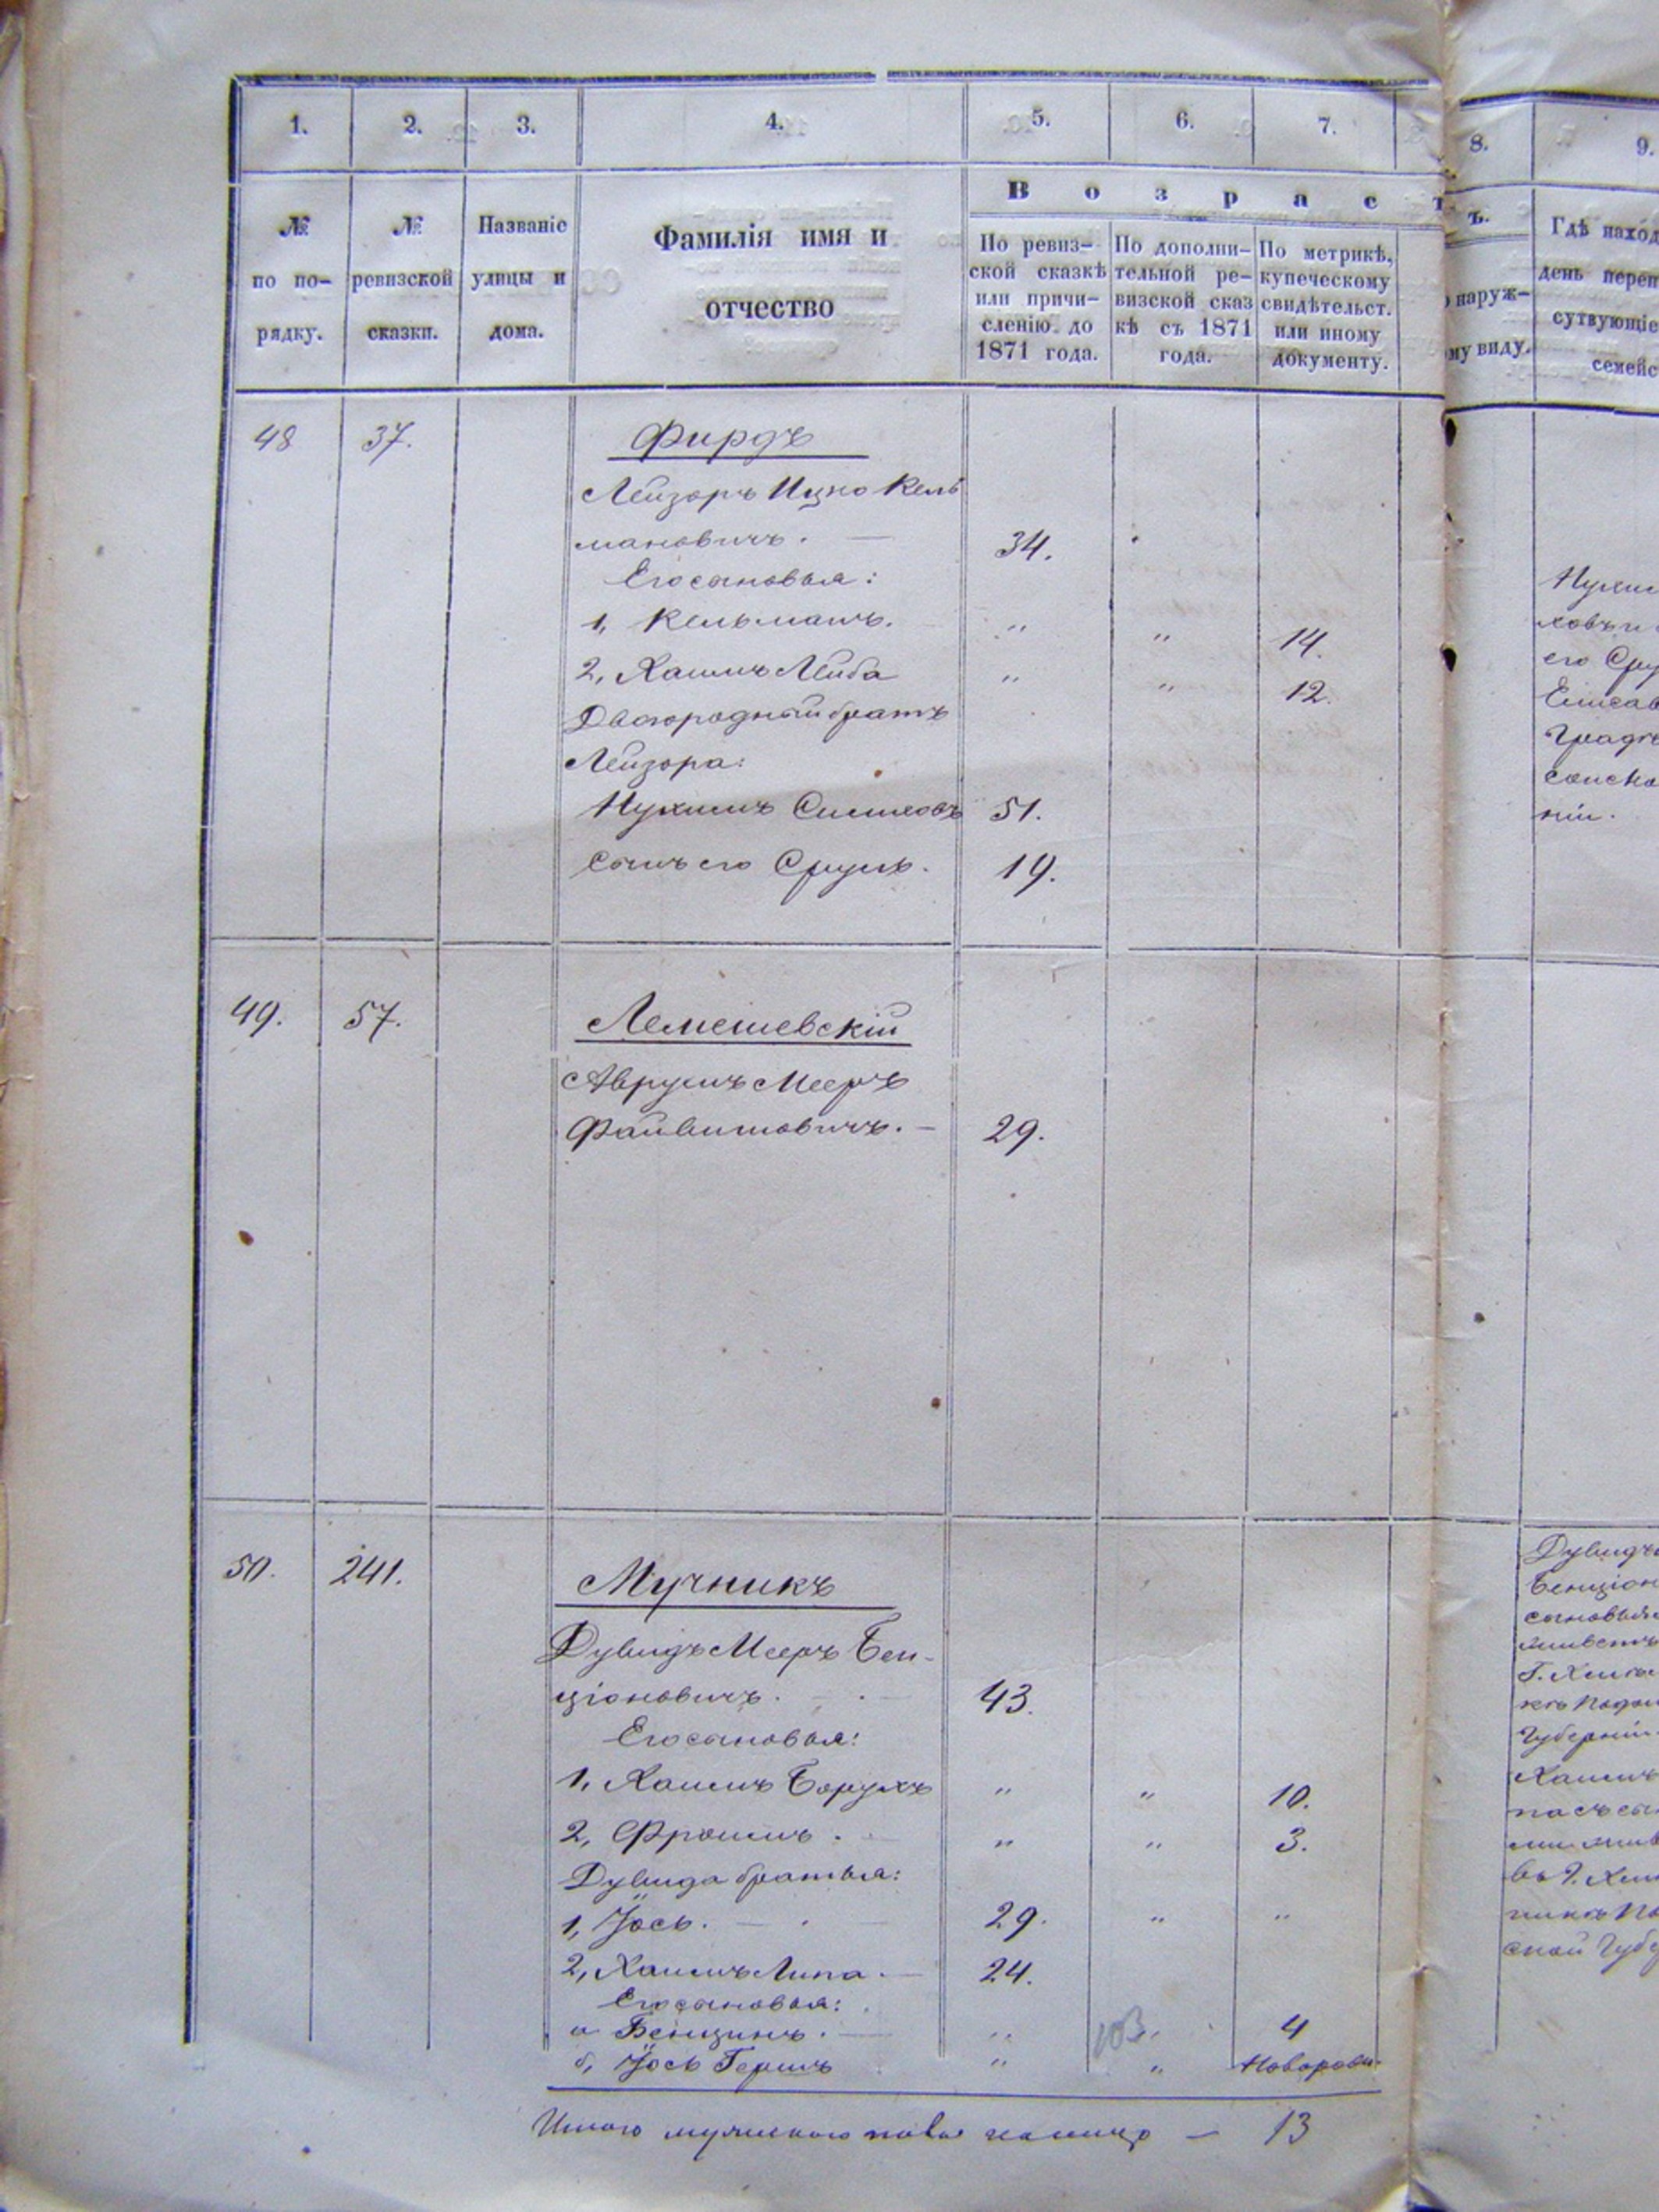 1. 2. 3. 4. 5. 6. 7. 8. 9.
В о з р а с т ъ.
№ по по-
рядку.
№
ревизской
сказки.
Названіе
улицы и
дома.
Фамилія имя и
отчество
По ревиз-
ской сказкѣ
или причи-
сленію до
1871 года.
По дополни-
тельной ре-
визской сказ
кѣ съ 1871
года.
По метрикѣ,
купеческому
свидѣтельст.
или иному
документу.
наруж-
му виду.
Гдѣ наход
день переп
сутвующіе
семейс
48 37. Фирдъ
Лейзоръ Ицко Кель
мановичъ. — 34.
Его сыновья:
1, Кельманъ. " " 14.
2, Хаимъ Лейба " " 12.
Двоюродный братъ
Лейзора:
Нухимъ Симховъ 51.
Сынъ его Сруль. 19.
Нухим
ховъ и
его Сру
Елисав
Градс
сонско
ніи.
49. 57. Лемешевскій
Аврумъ Мееръ
Файвишовичъ. — 29.
50. 241. Мучникъ
Дувидъ Мееръ Бен-
ціоновичъ. — 43.
Его сыновья:
1, Хаимъ Борухъ " " 10.
2, Фроимъ. " " 3.
Дувида братья:
1, Іось. — 29. " "
2, Хаимъ Липа. — 24.
Его сыновья:
а Бенцинъ. — " " 4
б, Іось Гершъ " " Новорож.
103
Дувидъ
Бенціон
сыновья
живетъ
Г. Хмел
кѣ Подол
Губерніи
Хаимъ
па съ сы
ми жив
въ Г. Хм
никѣ По
ской Губе
Итого мужеского пола наличн — 13